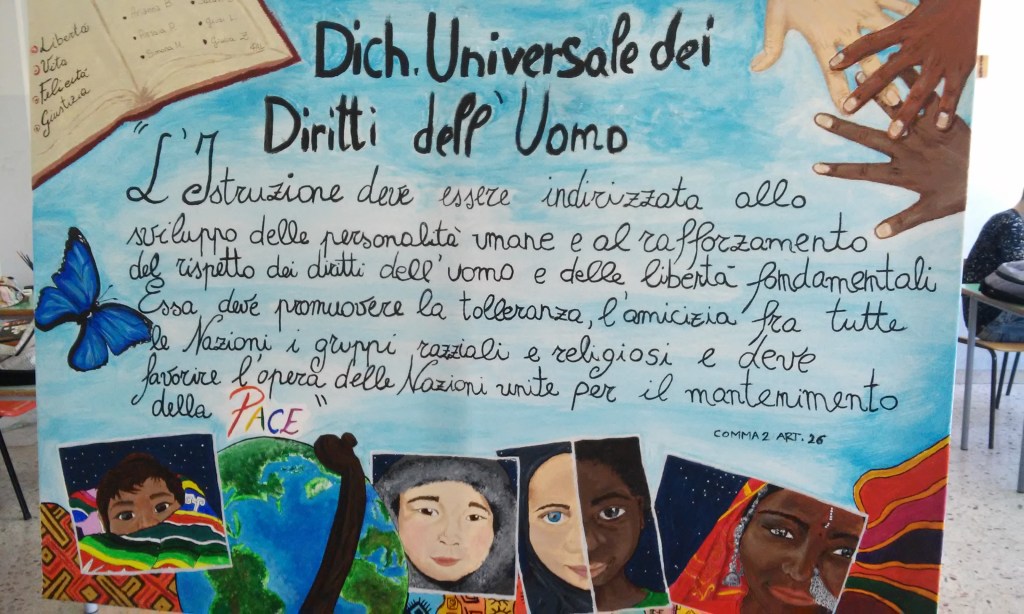 Libertà
Vita
Felicità
Giustizia
Dich. Universale dei
Diritti dell'Uomo
"L'Istruzione deve essere indirizzata allo
sviluppo delle personalità umane e al rafforzamento
del rispetto dei diritti dell'uomo e delle libertà fondamentali
Essa deve promuovere la tolleranza, l'amicizia fra tutte
le Nazioni i gruppi razziali e religiosi e deve
favorire l'opera delle Nazioni unite per il mantenimento
della PACE"
COMMA 2 ART. 26